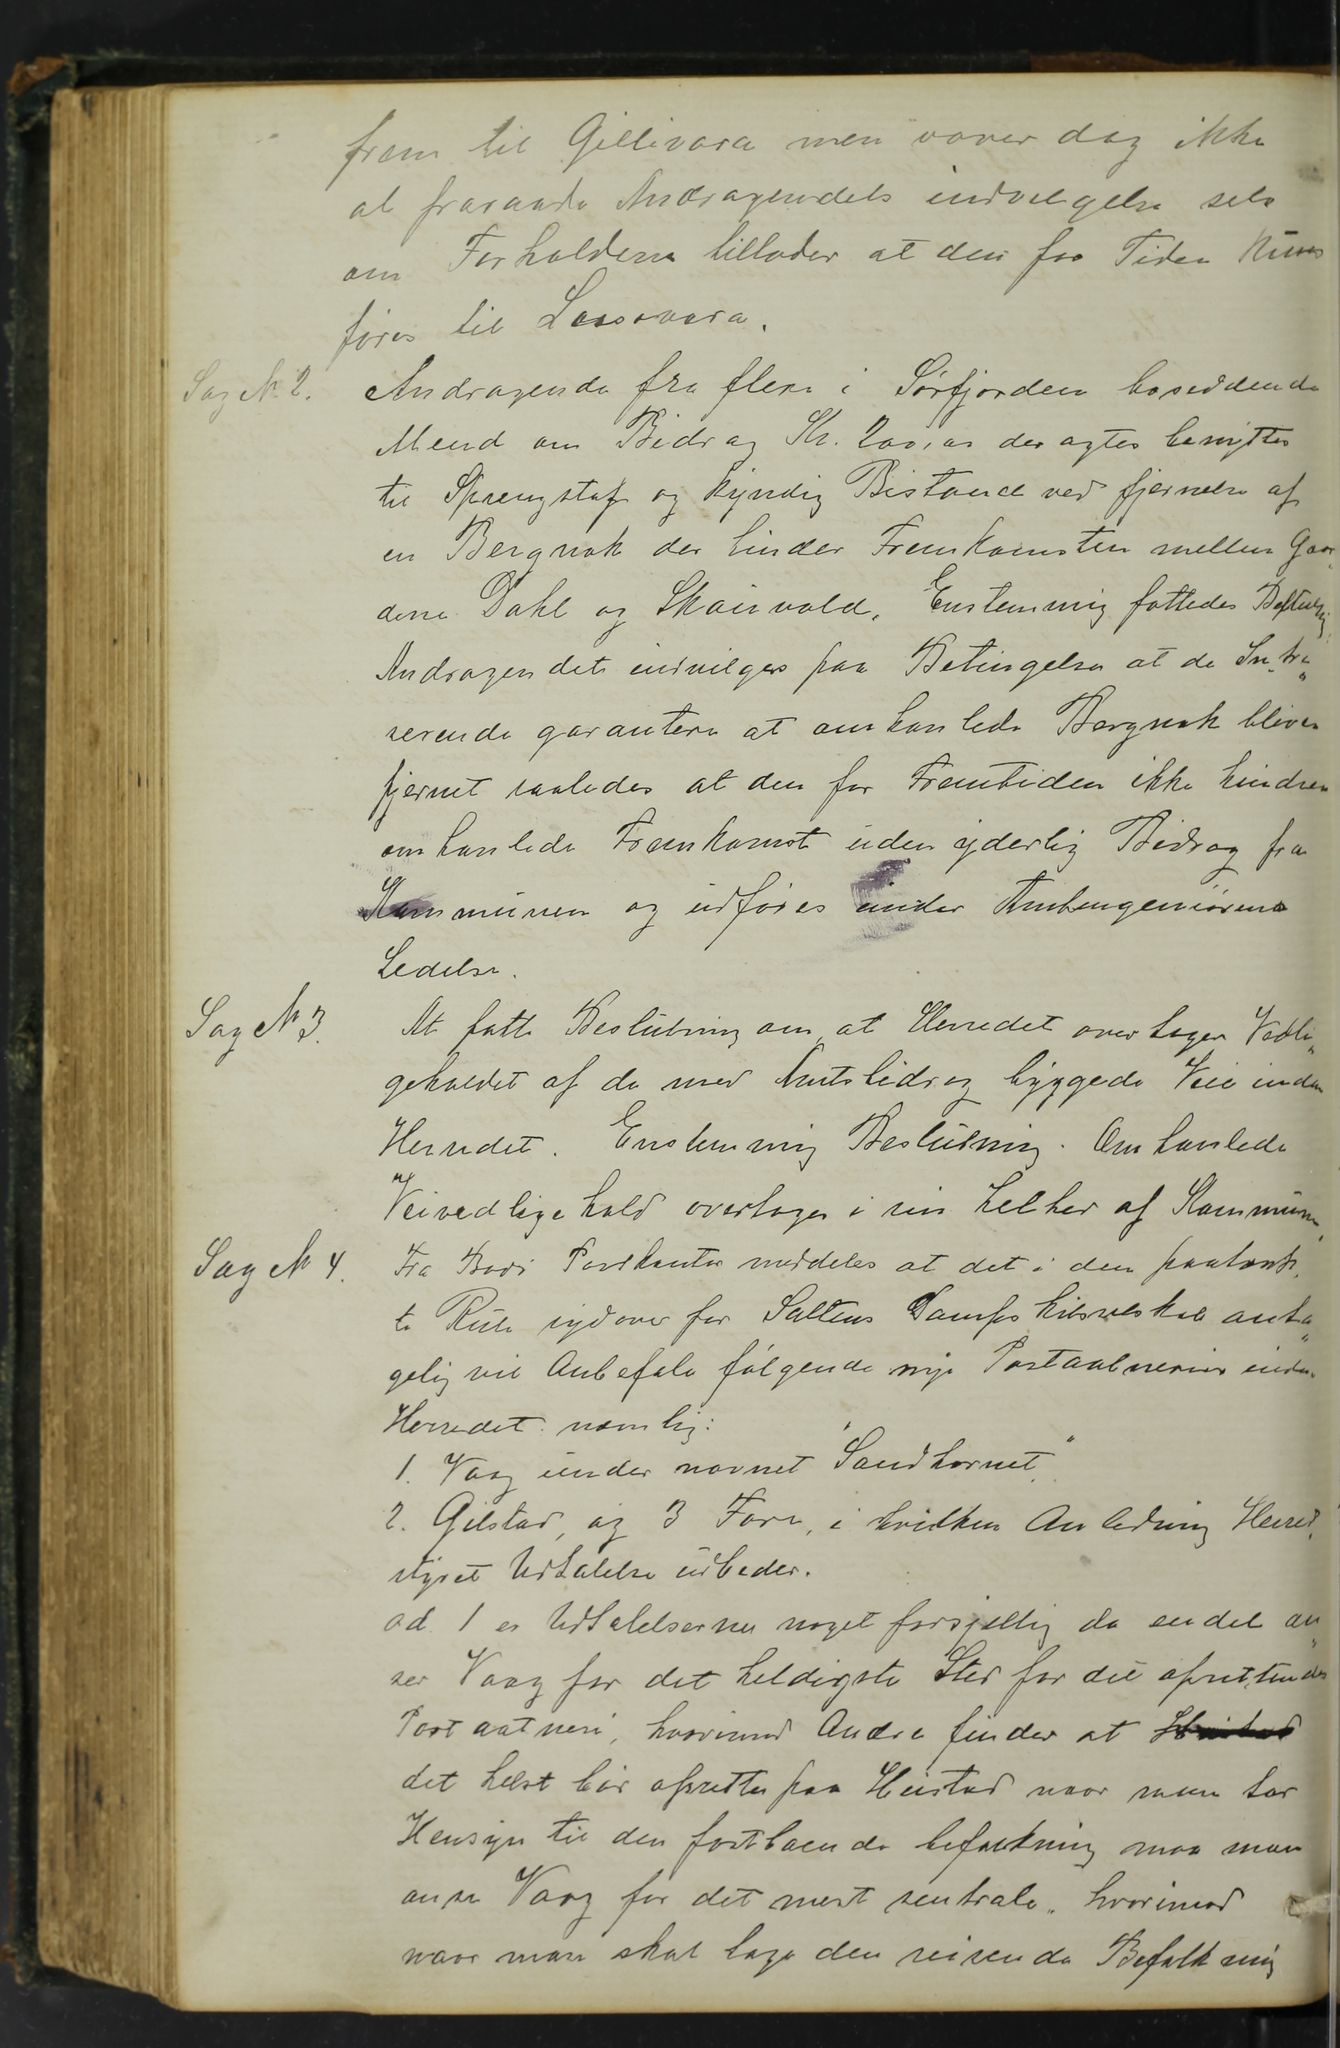 frem til Gellivara men vover dog ikke
at fraraade Andragendets indvilgelse selv
om Forholdene tillader at den for Tiden kuns
føres til Loosovara.
Sag № 2. Andragende fra flere i Sørfjorden boseddende
Mend om Bidrag Kr. 200,00 der agtes benyttes
til Sprengstof og kyndig Bistand ved fjernelse af
en Bergnak der hinder Fremkomsten mellem Gaar„
dene Dahl og Skaivold. Enstemmig fattedes Beslutnig.
Andragendet indvilges paa Betingelse at de Intre„
serende garantere at omhanlede Bergnak bliver
fjernet saaledes at den for Fremtiden ikke hindrer
omhanlede Fremkomst uden yderlig Bidrag fra
Kommunen og udføres under Amtsingeniørens
Ledelse.
Sag № 3. At fatte Beslutning om, at Herredet overtager Vedli„
geholdet af de med Amtsbidrag byggede Veie inden
Herredet. Enstemmig Beslutning. Omhanlede
Veivedligehold overtages i sin helhed af Kommunen,
Sag № 4. Fra Bodø Postkontor meddeles at det i den paatænk„
te Rute sydover for Saltens Dampskibsselskab anta„
gelig vil Anbefale følgende nye Postaabnerier inden
Herredet nemlig:
1. Vaag under navnet "Sandhornet"
2. Gilstad, og 3 Fore, i hvilken Anledning Herreds„
styret Udtalelse udbedes.
ad 1 er Udtalelserne noget forsjellig da endel an„
ser Vaag for det heldigste Sted for det oprettendes
Postaatneri, hvorimod Andre finder at
det helst bør oprettes paa Heistad naar man tar
Hensyn til den fastboende befolkning maa man
anse Vaag for det mest sentrale„ hvorimod
naar man skal tage den reisende Befolkning